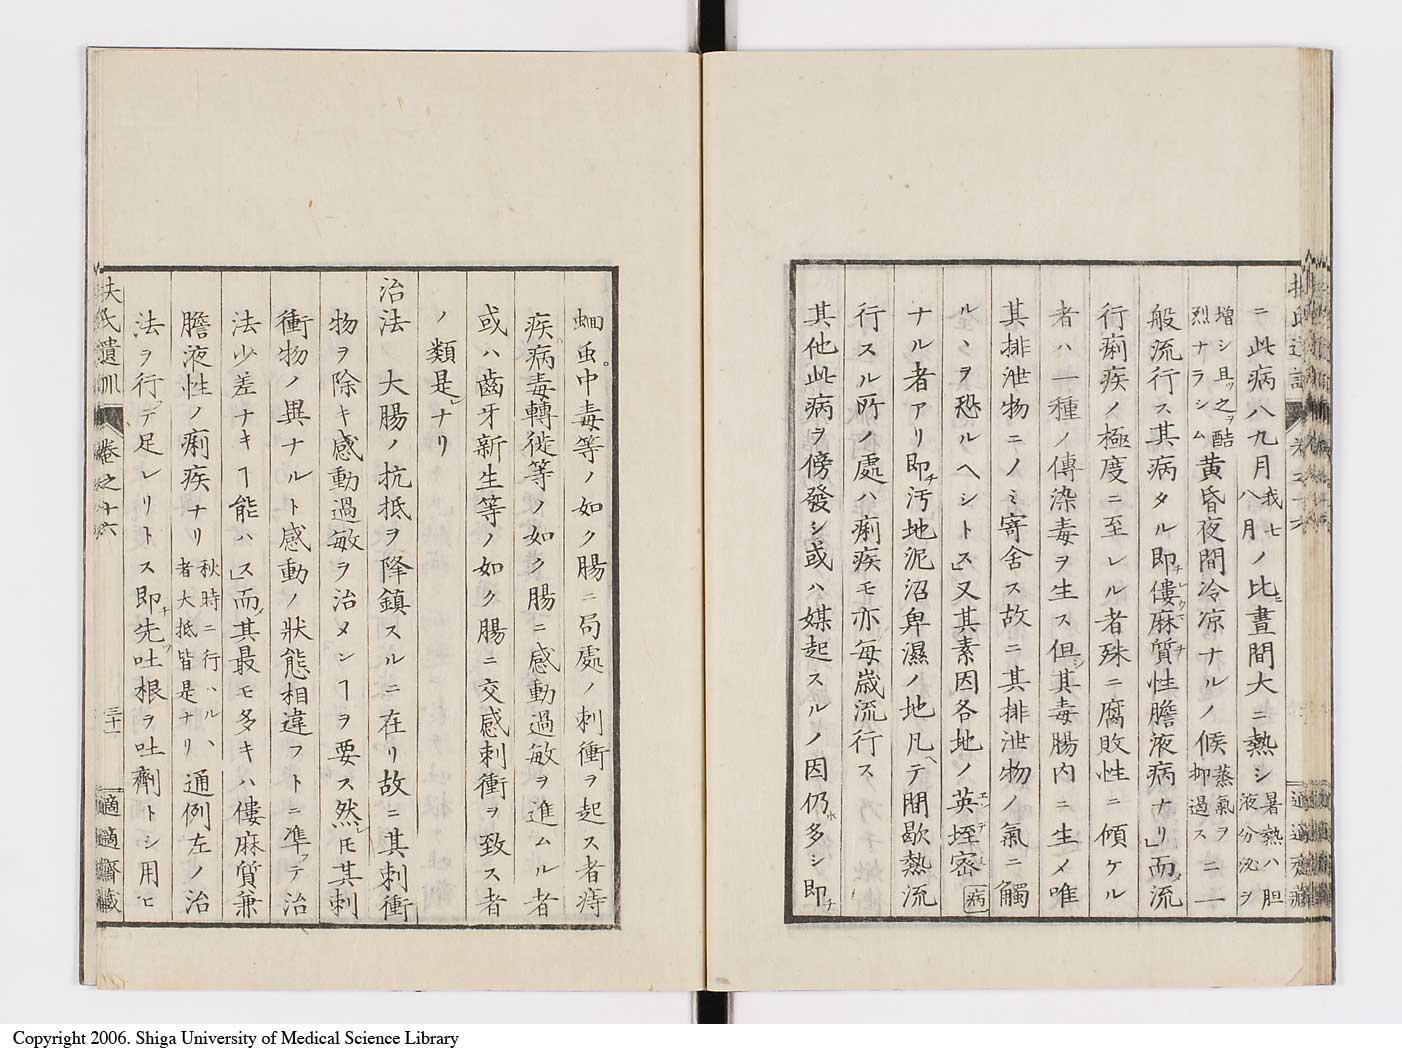 ニ此病八九月我七八月ノ比晝間大ニ熱シ暑熱ハ胆液分泌ヲ
増シ且之ヲ酷烈ナラシム黄昏夜間冷凉ナルノ候蒸氣ヲ抑遏スニ一
般流行ス其病タル即僂麻質性膽液病ナリ」而流
行痢疾ノ極度ニ至レル者殊ニ腐敗性ニ傾ケル
者ハ一種ノ傳染毒ヲ生ス但其毒腸内ニ生メ唯
其排泄物ニノミ寄舍ス故ニ其排泄物ノ氣ニ觸
ルヽヲ恐ルヘシトス」又其素因各地ノ英垤密病
ナル者アリ即汚地泥沼卑濕ノ地凡テ間歇熱流
行スル所ノ處ハ痢疾モ亦毎歳流行ス乃チ
其他此病ヲ傍發シ或ハ媒起スルノ因仍多シ即
蛔虫中毒等ノ如ク腸ニ局處ノ刺衝ヲ起ス者痔
疾病毒轉徙等ノ如ク腸ニ感動過敏ヲ進ムル者
或ハ齒牙新生等ノ如ク腸ニ交感刺衝ヲ致ス者
ノ類是ナリ
治法 大腸ノ抗抵ヲ降鎮スルニ在リ故ニ其刺衝
物ヲ除キ感動過敏ヲ治メンヿヲ要ス然ㇾ𪜈其刺
衝物ノ異ナルト感動ノ狀態相違フトニ準テ治
法少差ナキヿ能ハス」而其最モ多キハ僂麻質兼
膽液性ノ痢疾ナリ秋時ニ行ハルヽ者大抵皆是ナリ通例左ノ治
法ヲ行テ足レリトス即先吐根ヲ吐劑トシ用ヒ
扶氏遺訓 卷之十六 三十一 適適齋藏
Copyright 2006. Shiga University of Medical Science Library